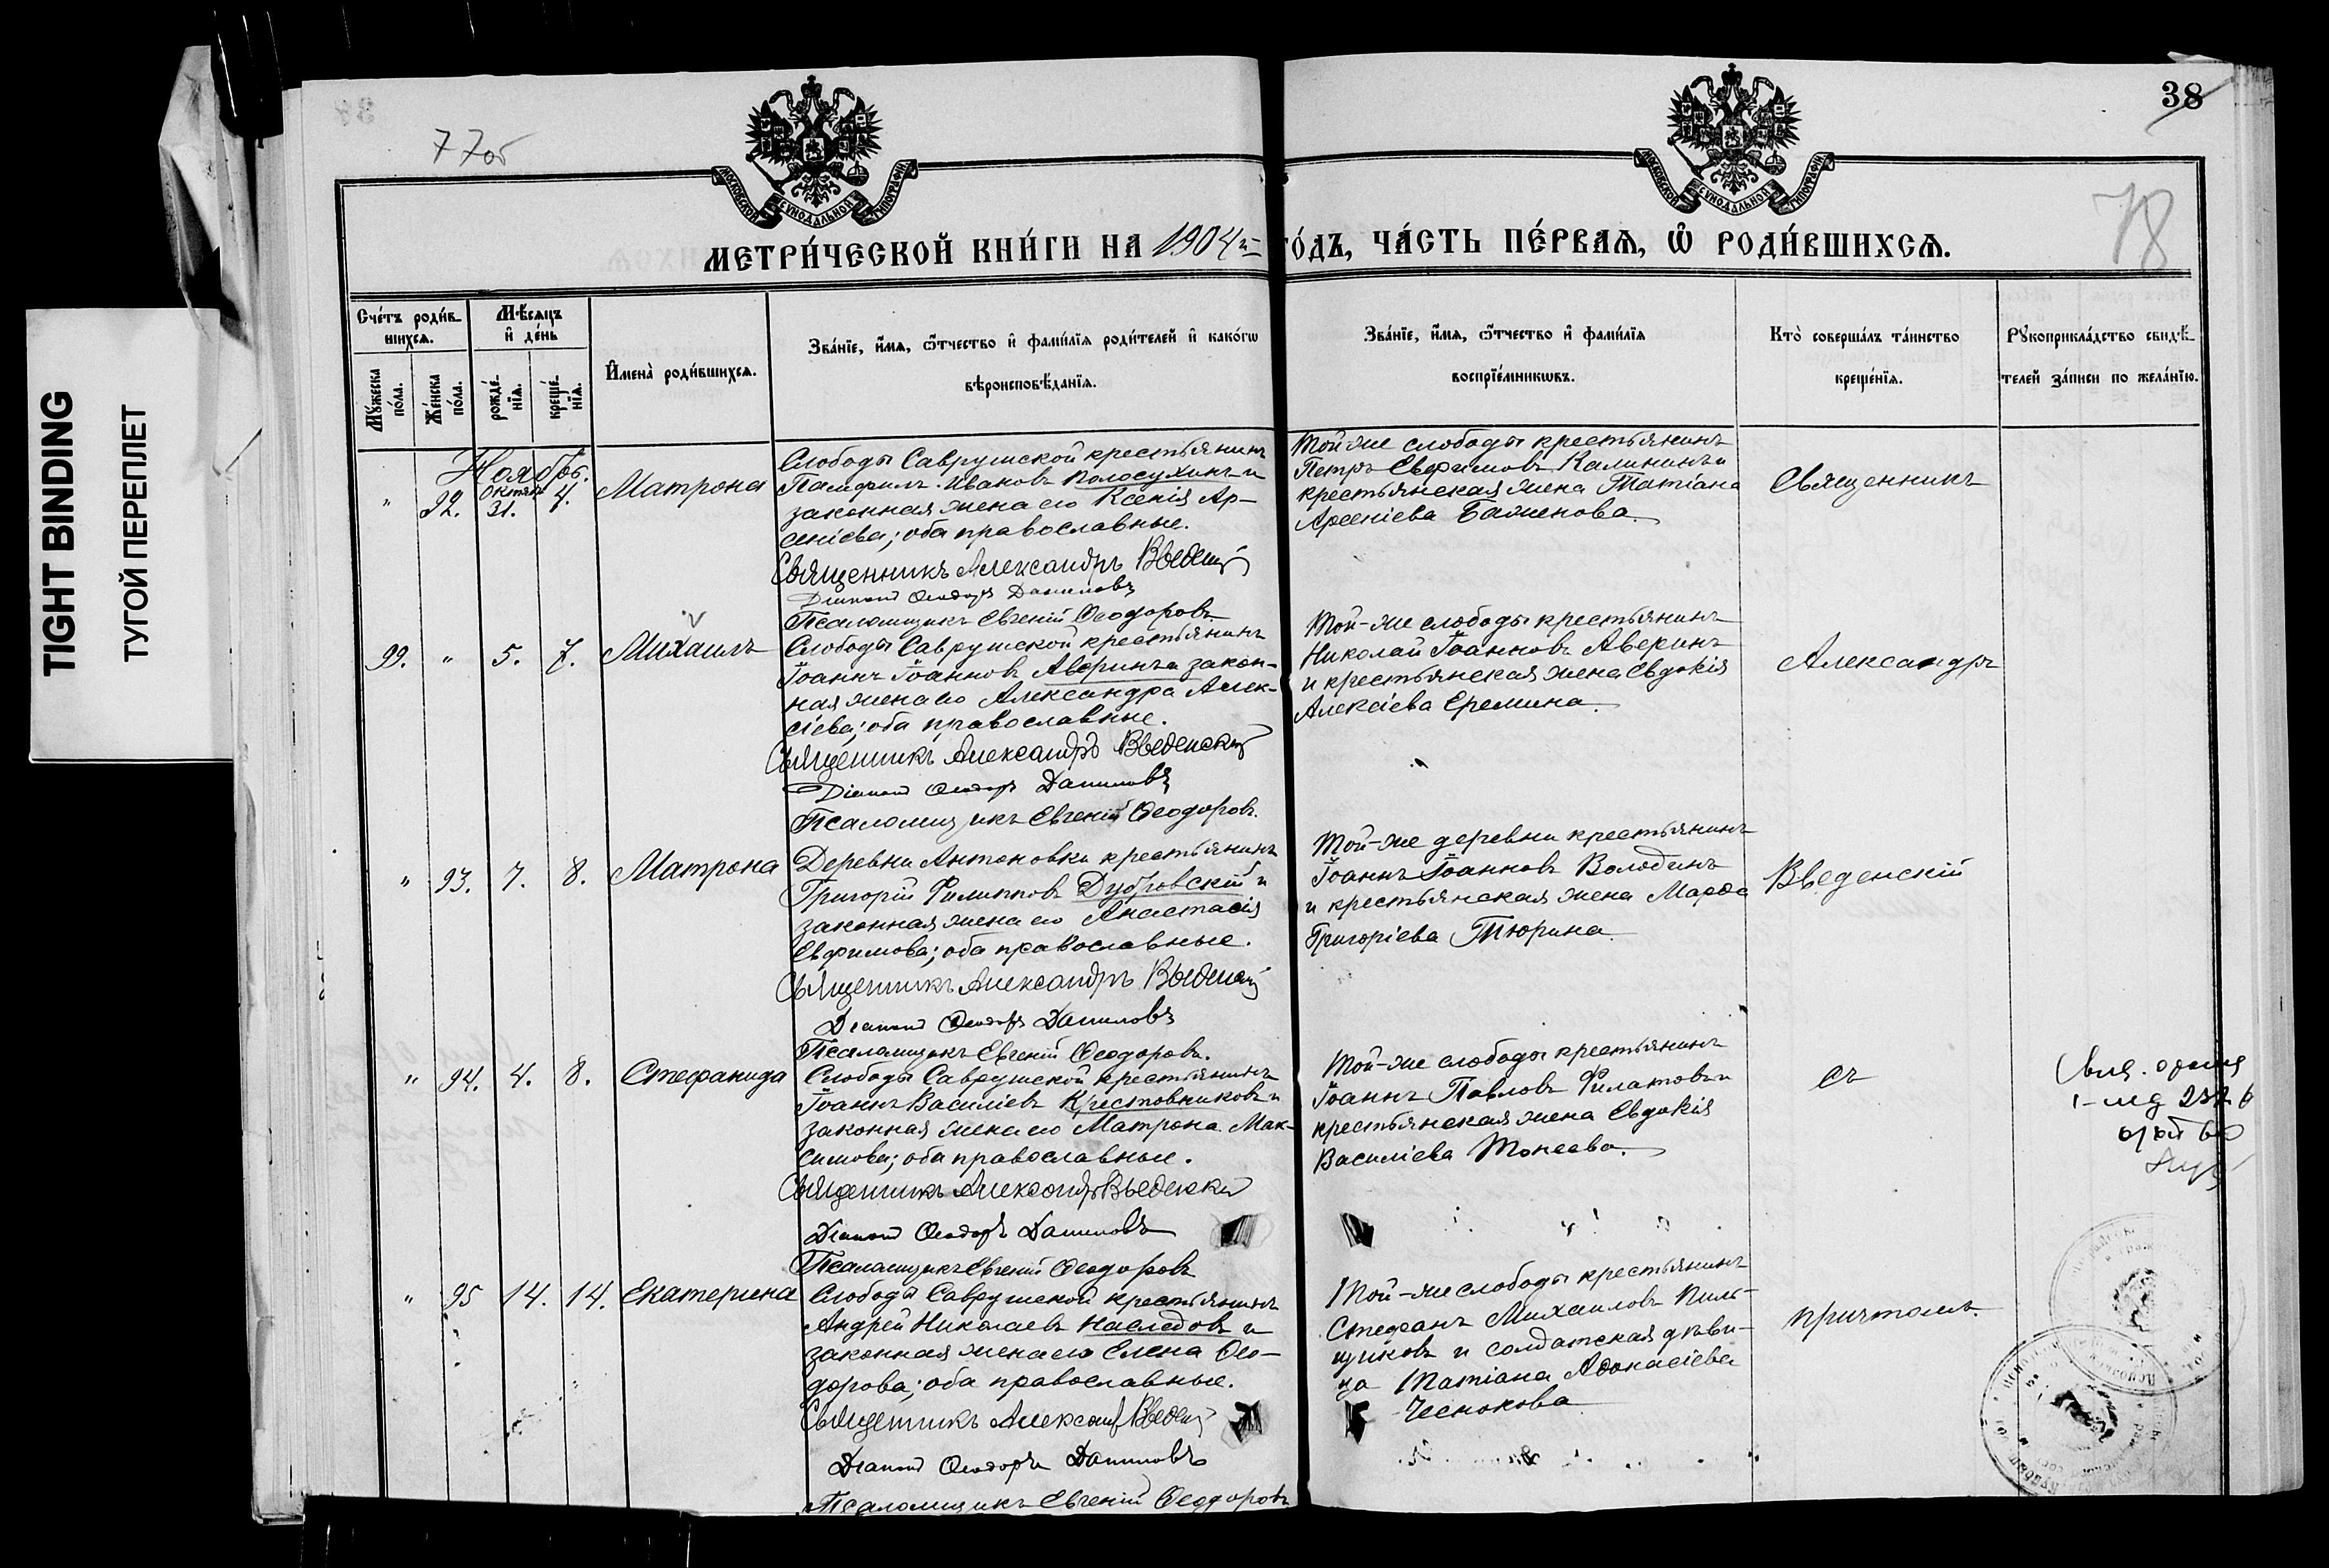 TIGHT BINDING
ТУГОЙ ПЕРЕПЛЕТ
77об
38
78
МОСКОВСКОЙ СѴНОДАЛЬНОЙ ТИПОГРАФІИ
МОСКОВСКОЙ СѴНОДАЛЬНОЙ ТИПОГРАФІИ
МЕТРИ́ЧЕСКОЙ КНИ́ГИ НА 1904й ГО́ДЪ, ЧА́СТЬ ПЕ́РВАЯ, Ѿ РОДИ́ВШИХСЯ.
Сче́тъ роди́в-
шихся.
Мѣ́сяцъ
и де́нь
Мꙋ́жеска
по́ла.
Же́нска
по́ла.
рожде́-
нїя.
креще́-
нїя.
Имена̀ роди́вшихся.
Зва́нїе, и́мя, ѻ́тчество и фами́лїя роди́телей и како́гѡ
вѣроисповѣ́данїя.
Зва́нїе, и́мя, ѻ́тчество и фами́лїя
воспрїе́мникѡвъ.
Кто̀ соверша́лъ та́инство
креще́нїя.
Рꙋкоприкла́дство свидѣ́-
телей за́писи по жела́нїю.
Ноябрь.
" 92. Октяб. 31. 4. Матрона
Слободы Саврушской крестьянинъ
Памфилъ Ивановъ Полосухинъ и
законная жена его Ксенія Ар-
сеніева; оба православные.
Священникъ Александръ Введенскій
Діаконъ Ѳеодоръ Даниловъ
Псаломщикъ Евгеній Ѳеодоровъ.
Той-же слободы крестьянинъ
Петръ Евфимовъ Калининъ и
крестьянская жена Татіана
Арсеніева Баженова.
Священникъ
99. " 5. 7. Михаилъ
Слободы Саврушской крестьянинъ
Іоаннъ Іоанновъ Аверинъ и закон-
ная жена его Александра Алек-
сіева; оба православные.
Священникъ Александръ Введенскій
Діаконъ Ѳеодоръ Даниловъ
Псаломщикъ Евгеній Ѳеодоровъ.
Той-же слободы крестьянинъ
Николай Іоанновъ Аверинъ
и крестьянская жена Евдокія
Алексіева Еремина.
Александръ
" 93. 7. 8. Матрона
Деревни Антоновки крестьянинъ
Григорій Филипповъ Дубровскій и
законная жена его Анастасія
Евфимова; оба православные.
Священникъ Александръ Введенскій
Діаконъ Ѳеодоръ Даниловъ
Псаломщикъ Евгеній Ѳеодоровъ.
Той-же деревни крестьянинъ
Іоаннъ Іоанновъ Володинъ
и крестьянская жена Марѳа
Григоріева Тюрина.
Введенскій
" 94. 4. 8. Стефанида
Слободы Саврушской крестьянинъ
Іоаннъ Василіевъ Крестовниковъ и
законная жена его Матрона Мак-
симова; оба православные.
Священникъ Александръ Введенскій
Діаконъ Ѳеодоръ Даниловъ
Псаломщикъ Евгеній Ѳеодоровъ
Той-же слободы крестьянинъ
Іоаннъ Павловъ Филатовъ и
крестьянская жена Евдокія
Василіева Тонеева.
съ
" 95 14. 14. Екатерина
Слободы Саврушской крестьянинъ
Андрей Николаевъ Наследовъ и
законная жена его Елена Ѳео-
дорова; оба православные.
Священникъ Александръ Введенскій
Діаконъ Ѳеодоръ Даниловъ
Псаломщикъ Евгеній Ѳеодоровъ
Той-же слободы крестьянинъ
Стефанъ Михаиловъ Пиль-
щиковъ и солдатская дѣви-
ца Татіана Аѳонасіева
Чеснокова
причтомъ.